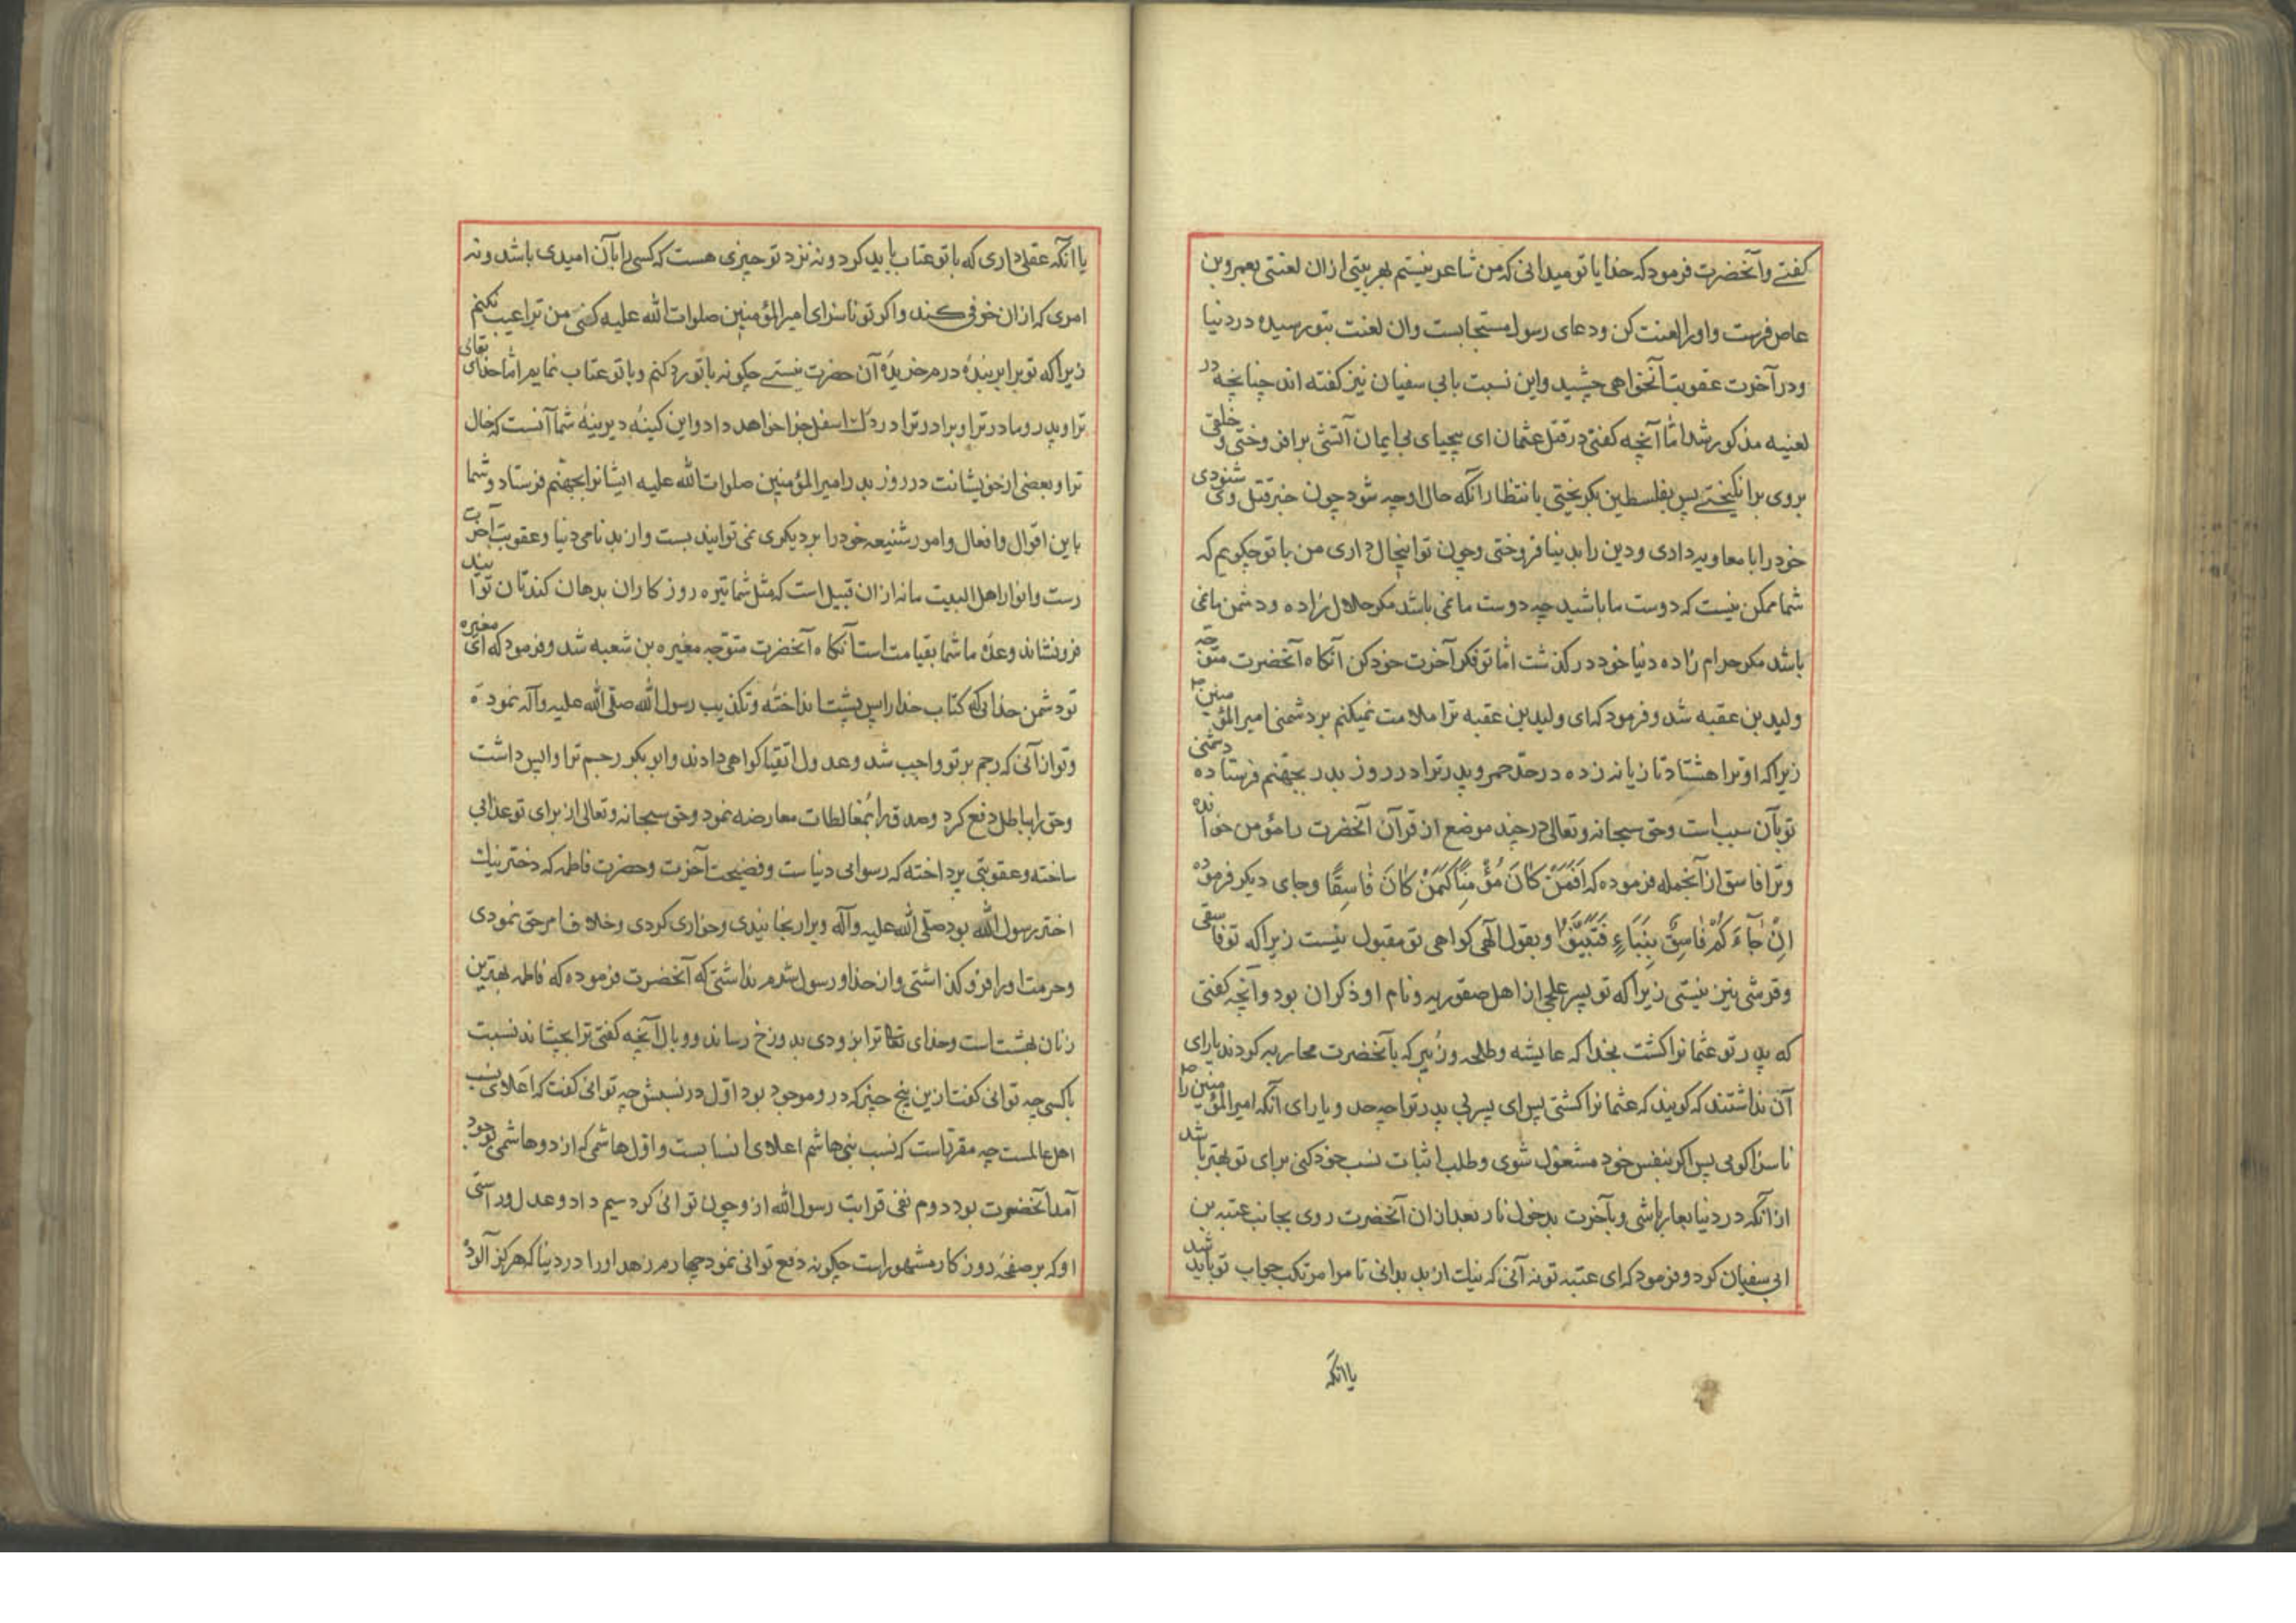 کفتی وآنحضرت فرمود که خدایا تو میدانی که من شاعر نیستم بهر بیتی ازان لعنتی بعمرو بن
عاص فرست واورا لعنت کن ودعای رسول مستجابست وان لعنت بتو رسیده در دنیا
ودر آخرت عقوبت آن خواهی چشید واین نسبت بابی سفیان نیز کفته اند چنانچه در
لعنیه مذکور شد امّا آنچه کفتی در قتل عثمان ای بیحیای بی ایمان آتشی برافروختی و خلقی
بروی برانکیختی پس بفلسطین بکریختی بانتظار آنکه حال او چه شود چون خبر قتل وی شنودی
خود را با معاویه دادی ودین را بدنیا فروختی وچون تو اینحال داری من با تو چکویم که
شما ممکن نیست که دوست ما باشید چه دوست ما نمی باشد مکر حلال زاده ودشمن ما نمی
باشد مکر حرام زاده دنیا خود در کذشت امّا تو فکر آخرت خود کن آنکاه آنحضرت متوجّه
ولید بن عقبه شد وفرمود که ای ولید بن عقبه ترا ملامت نمیکنم بر دشمنی امیر المؤمنین
زیرا که او ترا هشتاد تازیانه زده در حدّ خمر وپدر ترا در روز بدر بجهنّم فرستاده دشمنی
تو بآن سبب است وحق سبحانه وتعالی در چند موضع از قرآن آنحضرت را مؤمن خوانده
وترا فاسق از آنجمله فرموده که اَفَمَنْ کانَ مُؤْمِناً کَمَنْ کانَ فاسِقًا وجای دیکر فرموده
اِنْ جآءَکُمْ فاسِقٌ بِنَبَاءٍ فَتَبَیَّنُوا وبقول آلهی کواهی تو مقبول نیست زیرا که تو فاسقی
وقرشی نیز نیستی زیرا که تو پسر علجی از اهل صفوریه ونام او ذکوان بود وآنچه کفتی
که پدر تو عثمانرا کشت بخدا که عایشه وطلحه وزبیر که با آنحضرت محاربه کردند یارای
آن نداشتند که کویند که عثمانرا کشتی پس ای پسر بی پدر ترا چه حد ویارای آنکه امیر المؤمنین را
ناسزا کویی پس اکر بنفس خود مشغول شوی وطلب اثبات نسب خود کنی برای تو بهتر باشد
از آنکه در دنیا بعار باشی وبآخرت بدخول نار بعد ازان آنحضرت روی بجانب عتبه بن
ابی سفیان کرد وفرمود که ای عتبه تو نه آنی که نیک از بد بدانی تا مرا مرتکب جواب تو باید شد
یا انکه
یا انکه عقلی داری که با تو عتاب باید کرد ونه نزد تو چیزی هست که کسی را بآن امیدی باشد ونه
امری که ازان خوفی کند واکر تو ناسزای امیر المؤمنین صلوات الله علیه کنی من ترا عیب نکنم
زیرا که تو برابر بندهٔ درم خریدهٔ آن حضرت نیستی چکونه با تو رد کنم وبا تو عتاب نمایم امّا خدای تعالی
ترا وپدر ومادر ترا وبرادر ترا در درک اسفل جزا خواهد داد واین کینهٔ دیرینهٔ شما آنست که خال
ترا وبعضی از خویشانت در روز بدر امیر المؤمنین صلوات الله علیه ایشانرا بجهنّم فرستاد وشما
باین اقوال وافعال وامور شنیعه خود را بر دیکری نمی توانید بست واز بدنامی دنیا وعقوبت آخرت
رست وانوار اهل البیت ما نه ازان قبیل است که مثل شما تیره روزکاران بدهان کندتان توانید
فرو نشاند وعدهٔ ما شما بقیامت است آنکاه آنحضرت متوجّه مغیره بن شعبه شد وفرمود که ای مغیره
تو دشمن خدایی که کتاب خدا را پس پشت انداختهٔ وتکذیب رسول الله صلّی الله علیه وآله نموده
وتو ازانی که رجم بر تو واجب شد وعدول اتقیا کواهی دادند وابو بکر رجم ترا واپس داشت
وحق را بباطل دفع کرد وصدق را بمغالطات معارضه نمود وحق سبحانه وتعالی از برای تو عذابی
ساخته وعقوبتی پرداخته که رسوایی دنیاست وفضیحت آخرت وحضرت فاطمه که دختر نیک
اختر رسول الله بود صلّی الله علیه وآله ویرا رنجانیدی وخواری کردی وخلاف امر حق نمودی
وحرمت اورا فرو کذاشتی واز خدا ورسول شرم نداشتی که آنحضرت فرموده که فاطمه بهترین
زنان بهشت است وخدای تعا ترا بزودی بدوزخ رساند ووبال آنچه کفتی ترا بچشاند نسبت
باکسی چه توانی کفت ازین پنج چیز که درو موجود بود اوّل در نسبش چه توانی کفت که اعلای نسب
اهل عالمست چه مقرّر است که نسب بنی هاشم اعلای انسابست واوّل هاشمی که از دو هاشمی بوجود
آمد آنحضرت بود دوم نفی قرابت رسول الله ازو چون توانی کرد سیم داد وعدل وراستی
او که بر صفحهٔ روزکار مشهور است چکونه دفع توانی نمود چهارم زهد اورا در دنیا که هرکز آلوده